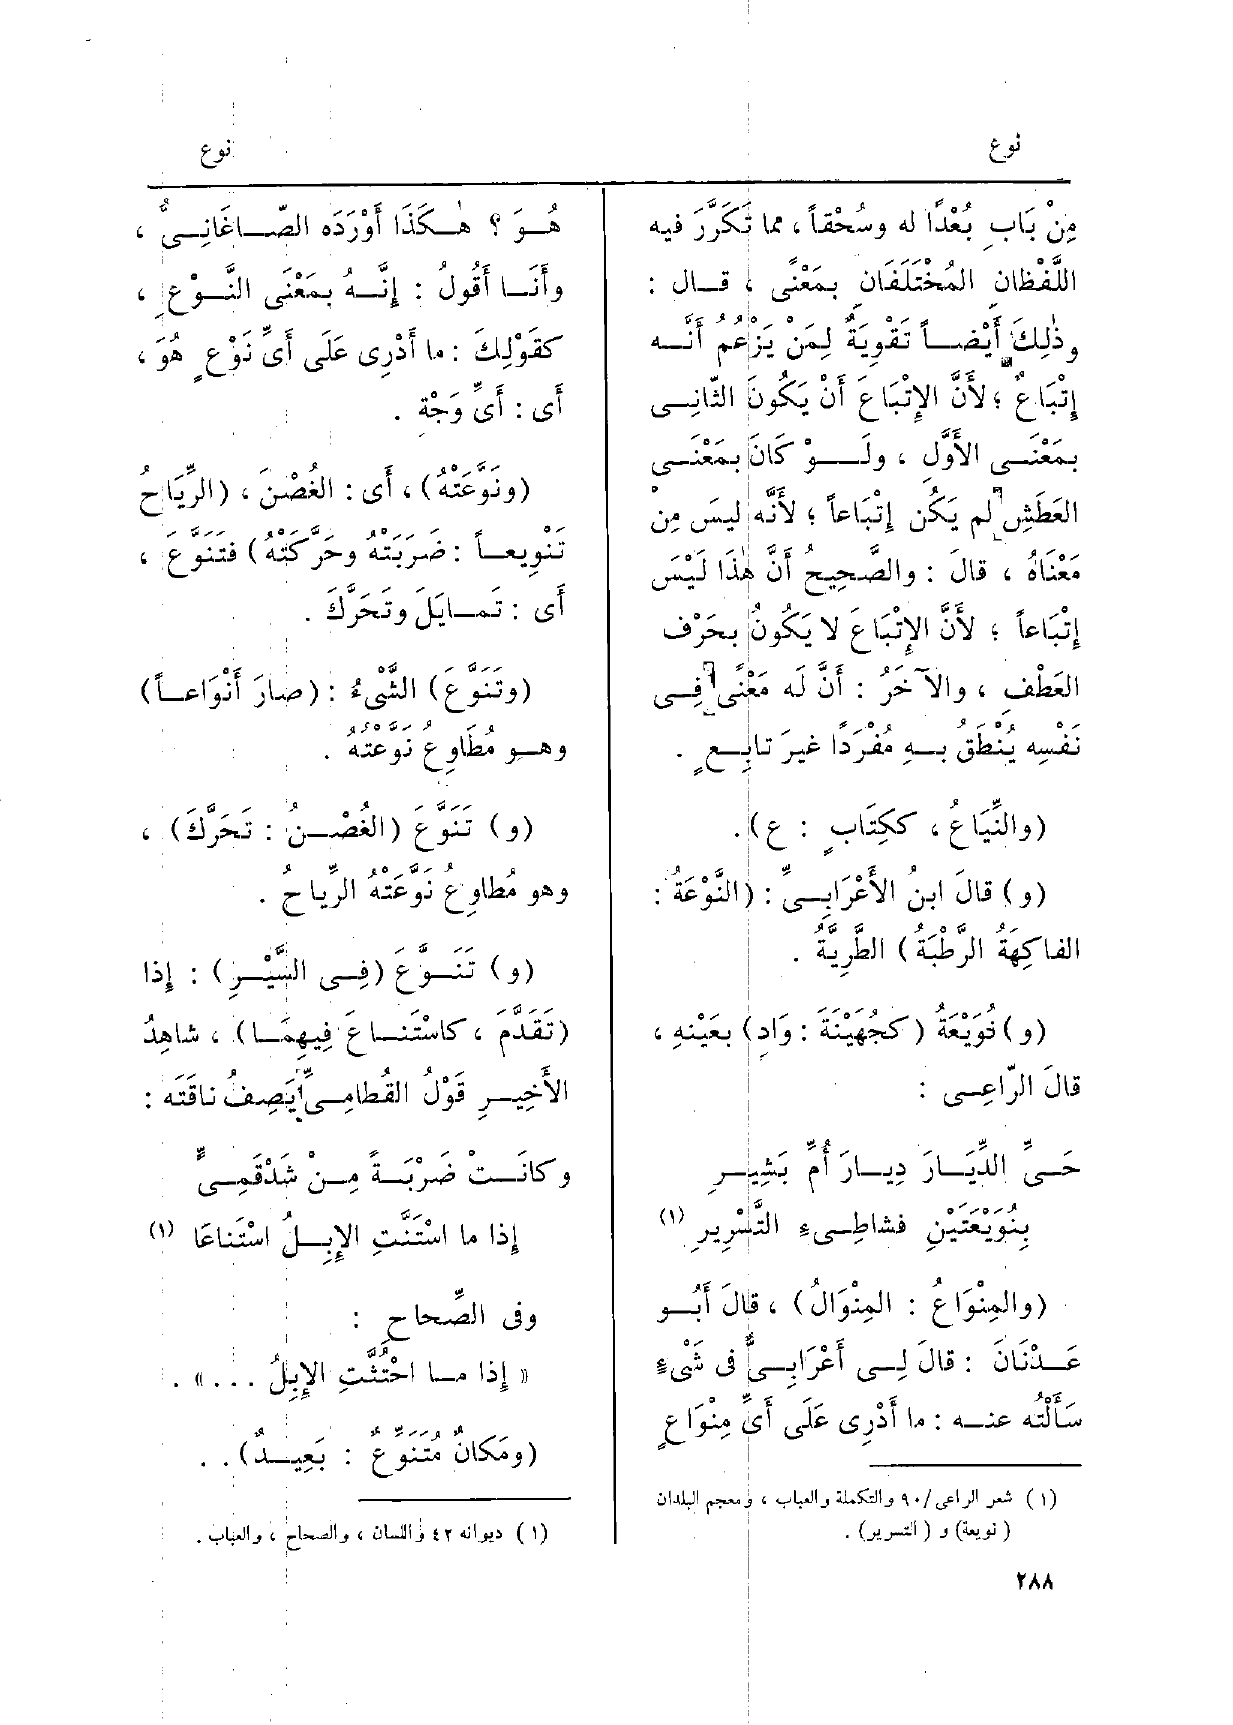 نوع
نوع
مِنْ بَابِ بُعْدًا له وسُحْقاً ، مما تَكَرَّرَ فيه
اللَّفْظانِ المُخْتَلِفَانِ بمَعْنًى ، قال :
وذٰلِكَ أَيْضاً تَقْوِيَةٌ لِمَنْ يَزْعُم أَنَّه
إِتْبَاعٌ ؛ لأَنَّ الإِتْبَاعَ أَنْ يَكُونَ الثّانِى
بمَعْنَى الأَوَّلِ ، ولَوْ كَانَ بمَعْنَى
العَطَشِ لم يَكُن إِتْبَاعاً ؛ لأَنَّه ليسَ مِن
مَعْنَاهُ ، قالَ : والصَّحِيحُ أَنَّ هٰذا لَيْسَ
إِتْبَاعاً ؛ لأَنَّ الإِتْبَاعَ لا يَكُونُ بحَرْف
العَطْفِ ، والآخَرُ : أَنَّ له مَعْنًى فِى
نَفْسِه يُنْطَق بهِ مُفْرَدًا غيرَ تابِعٍ .
(والنِّيَاعُ ، ككِتَابٍ : ع) .
(و) قالَ ابنُ الأَعْرَابِىِّ : (النَّوْعَةُ :
الفاكِهَةُ الرَّطْبَةُ) الطَّرِيَّةُ .
(و) نُوَيْعَةُ (كجُهَيْنَةَ : وَادٍ) بعَيْنِهِ ،
قالَ الرّاعِى :
حَىِّ الدِّيَارَ دِيارَ أُمِّ بَشِيرِ
بِنُوَيْعَتَيْنِ فشاطِىءِ التَّسْرِيرِ (١)
(والمِنْوَاعُ : المِنْوَالُ) ، قالَ أَبُو
عَدْنَانَ : قالَ لِى أَعْرَابِىٌّ فى شَىْءٍ
سَأَلْتُه عنه : ما أَدْرِى عَلَى أَىِّ مِنْوَاعٍ
(١) شعر الراعى /٩٠ والتكملة والعباب ، ومعجم البلدان
(نويعة) و (التسرير) .
٢٨٨
هُوَ ؟ هٰكَذَا أَوْرَدَه الصّاغَانِىُّ ،
وأَنَا أَقُولُ : إِنَّهُ بمَعْنَى النَّوْعِ ،
كقَوْلِكَ : ما أَدْرِى عَلَى أَىِّ نَوْعٍ هُوَ ،
أَى : أَىِّ وَجْهٍ .
(ونَوَّعَتْهُ) ، أَى : الغُصْنَ ، (الرِّيَاحُ
تَنْوِيعاً : ضَرَبَتْه وحَرَّكَتْهُ) فتَنَوَّعَ ،
أَى : تَمايَلَ وتَحَرَّكَ .
(وتَنَوَّعَ) الشَّىءُ : (صارَ أَنْوَاعاً)
وهو مُطَاوِعُ نَوَّعْتُه .
(و) تَنَوَّعَ (الغُصْنُ : تَحَرَّكَ) ،
وهو مُطاوِعُ نَوَّعَتْهُ الرِّياحُ .
(و) تَنَوَّعَ (فِى السَّيْرِ) : إِذا
(تَقَدَّمَ ، كاسْتَنَاعَ فِيهِمَا) ، شاهِدُ
الأَخِيرِ قَوْلُ القُطامِىِّ يَصِفُ ناقَتَه :
وكانَتْ ضَرْبَةً مِنْ شَدْقَمِىٍّ
إِذا ما اسْتَنَّتِ الإِبِلُ اسْتَناعَا (١)
وفى الصِّحاحِ :
« إِذا ما احْتُثَّتِ الإِبِلُ . . . » .
(ومَكانٌ مُتَنَوِّعٌ : بَعِيدٌ) . .
(١) ديوانه ٤٢ واللسان ، والصحاح ، والعباب .